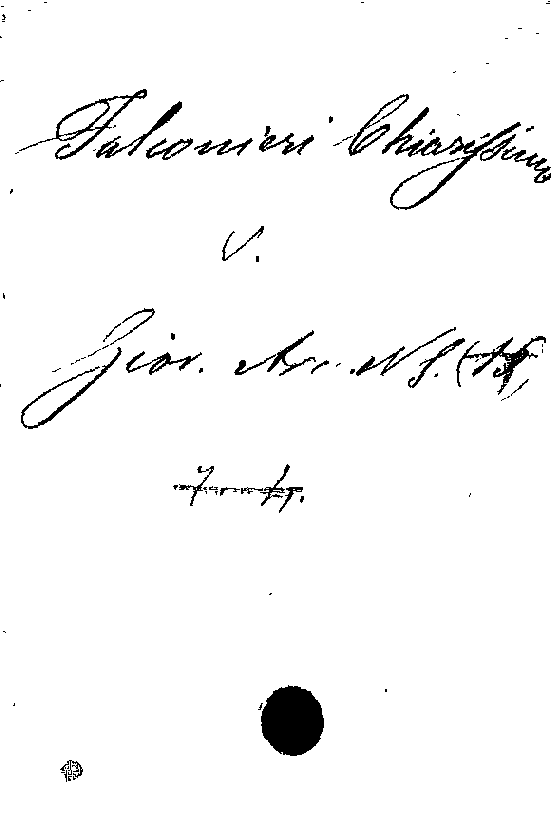 Falconieri Chiarissimo
v.
Giov. Ar. N. S.